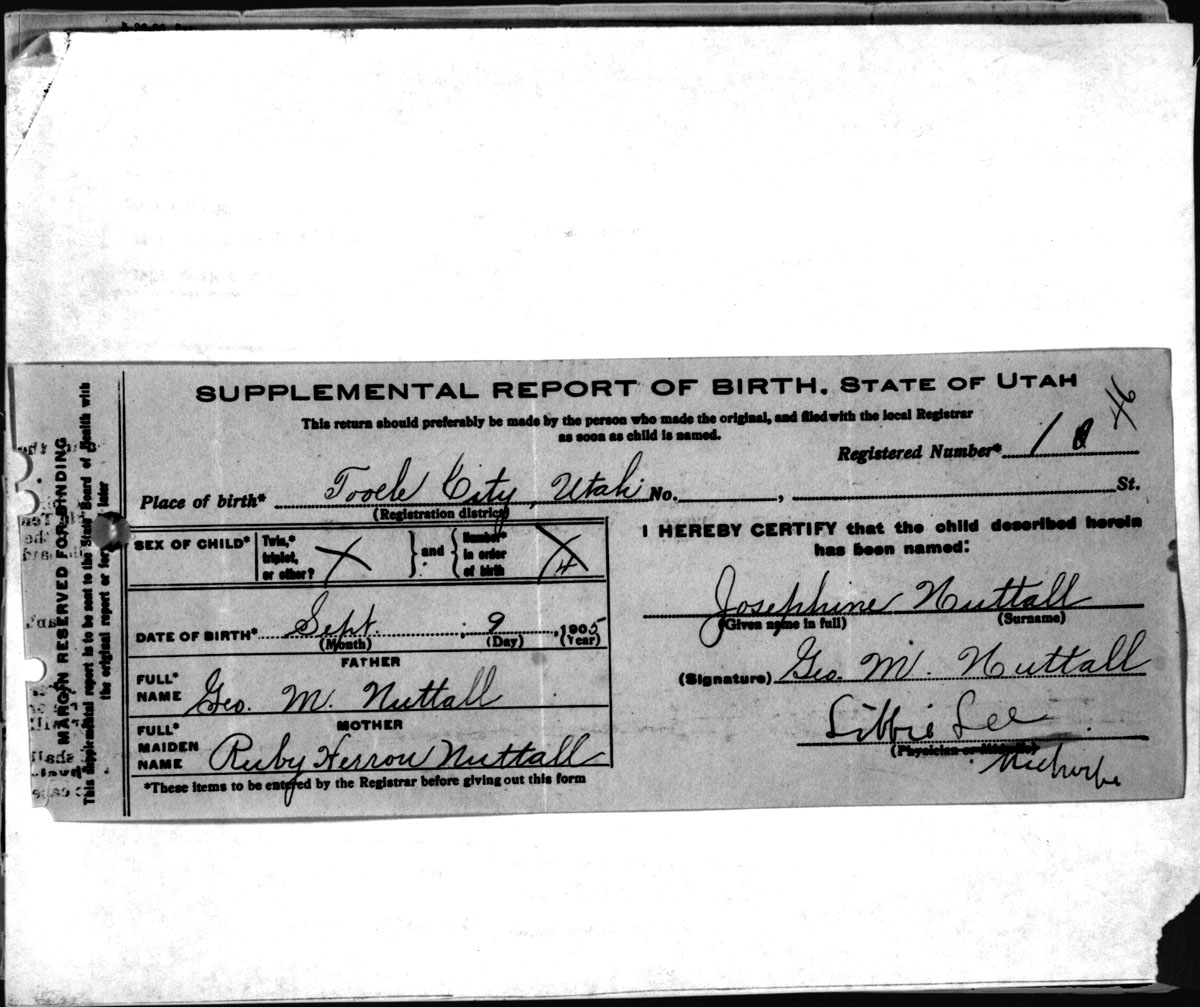 SUPPLEMENTAL REPORT OF BIRTH. STATE OF UTAH
46
This return should preferably be made by the person who made the original, and filed with the local Registrar
as soon as child is named.
Registered Number* 1
Place of birth* Tooele City, Utah No. , St.
(Registration district)
SEX OF CHILD* Twin,* triplet, or other? X and Number* in order of birth X 4
DATE OF BIRTH* Sept. , 9 , 1905
(Month) (Day) (Year)
FATHER
FULL* NAME Geo. M. Nuttall
MOTHER
FULL* MAIDEN NAME Ruby Herron Nuttall
*These items to be entered by the Registrar before giving out this form
I HEREBY CERTIFY that the child described herein
has been named:
Josephine Nuttall
(Given name in full) (Surname)
(Signature) Geo. M. Nuttall
Libbie Lee
(Physician or Midwife)
MARGIN RESERVED FOR BINDING
This supplemental report is to be sent to the State Board of Health with
the original report or later